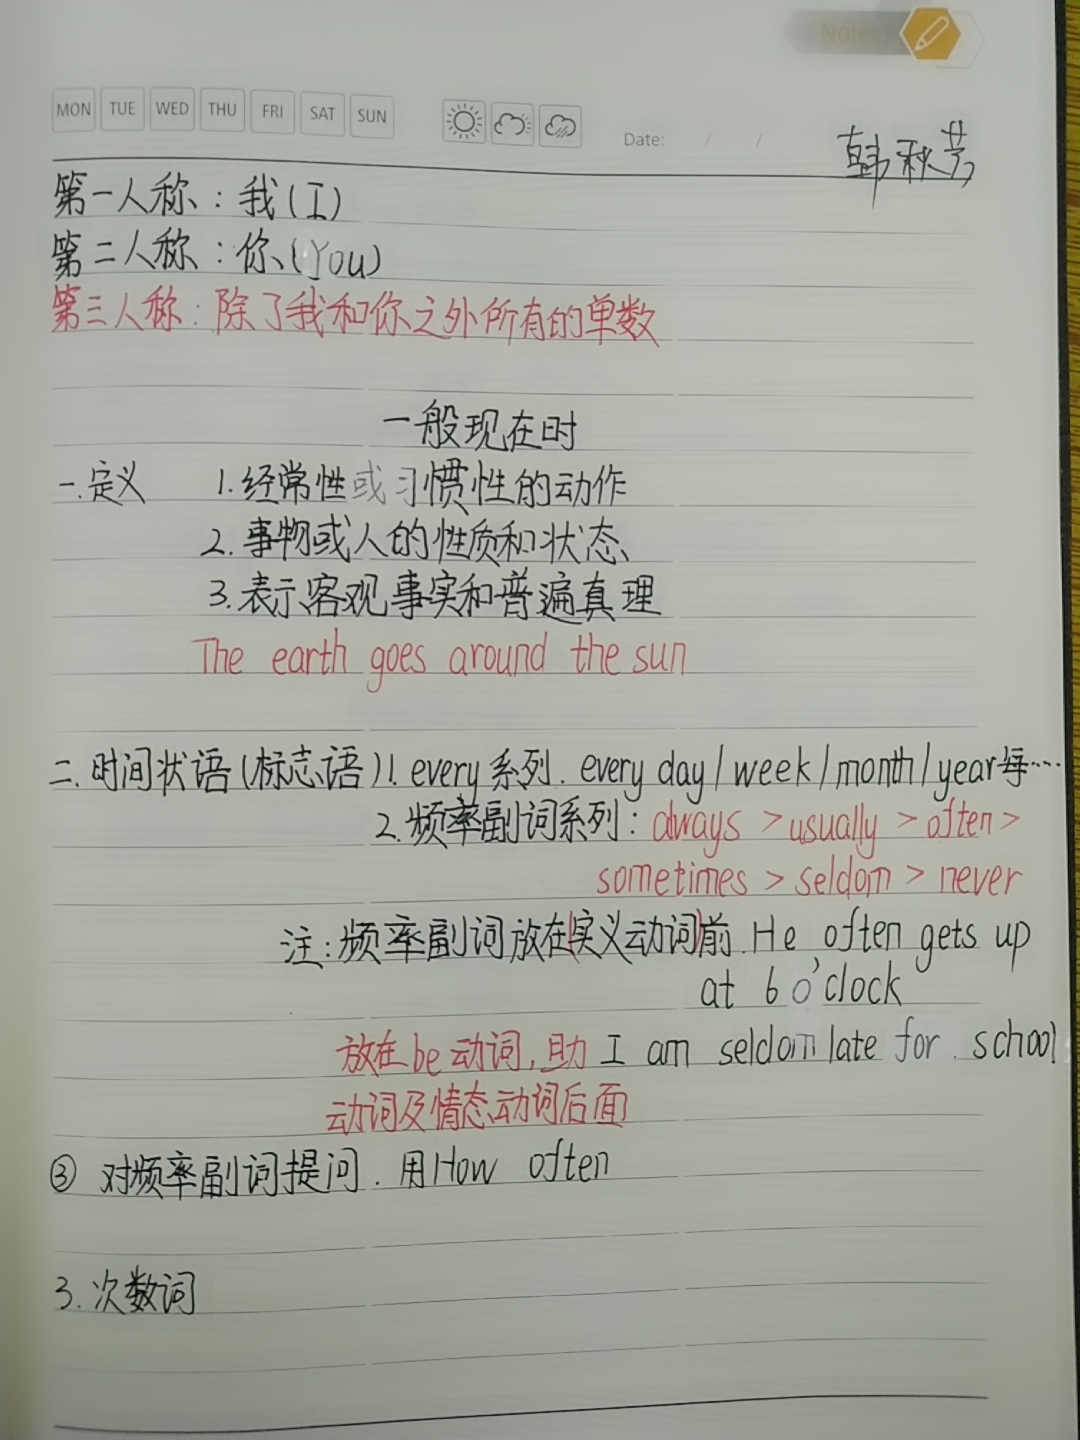 Notes
MON TUE WED THU FRI SAT SUN Date: / /
韩秋芳
第一人称：我(I)
第二人称：你(You)
第三人称：除了我和你之外所有的单数
一般现在时
一.定义 1.经常性或习惯性的动作
2.事物或人的性质和状态
3.表示客观事实和普遍真理
The earth goes around the sun
二.时间状语(标志语)1.every系列.every day/week/month/year每…
2.频率副词系列：always > usually > often >
sometimes > seldom > never
注：频率副词放在实义动词前.He often gets up
at 6 o'clock
放在be动词,助 I am seldom late for school
动词及情态动词后面
③ 对频率副词提问.用How often
3.次数词